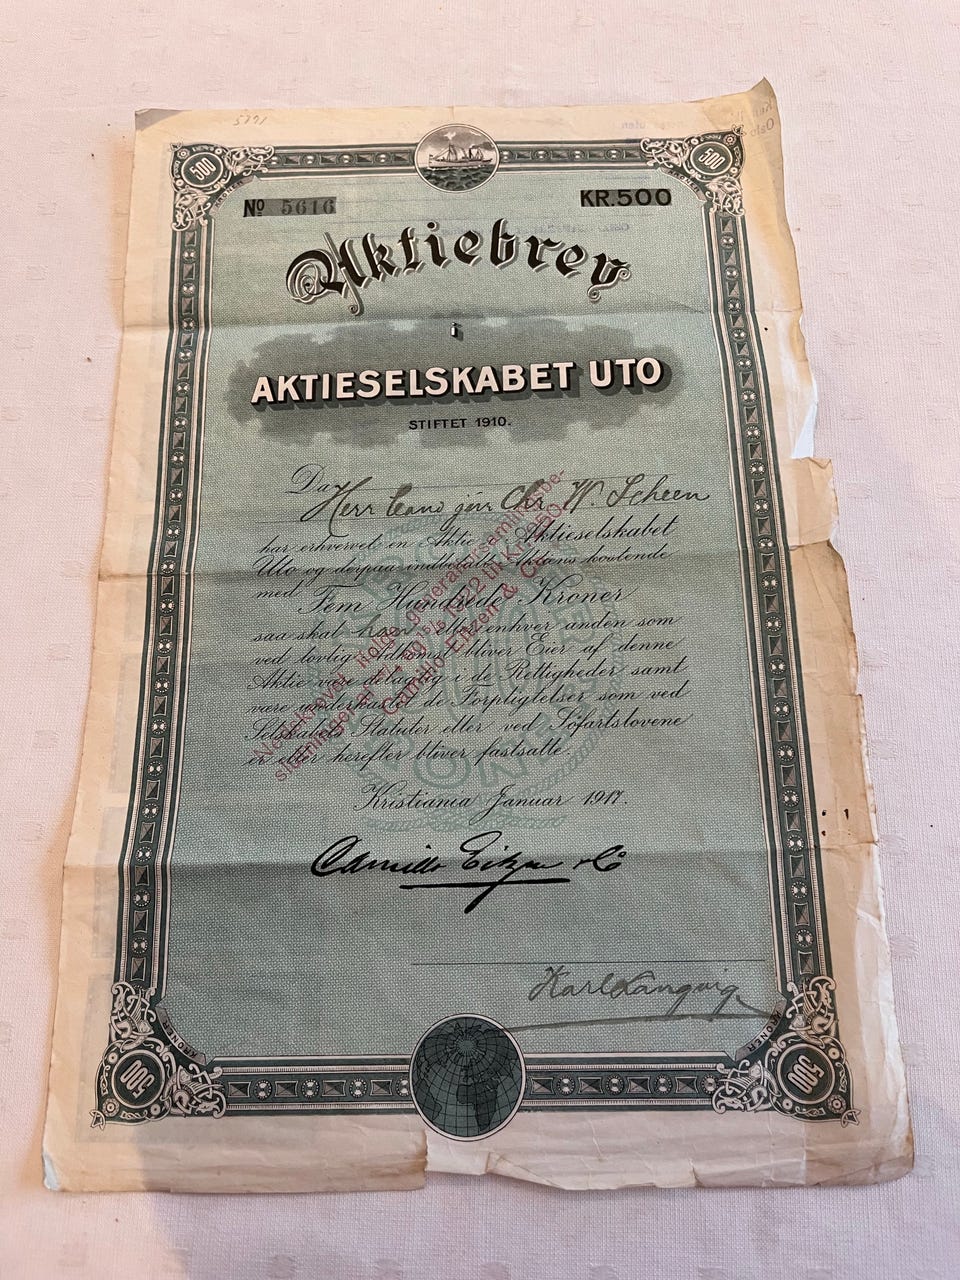 5771
500
KRONER
500
KRONER
Nº 5616
KR.500
Aktiebrev
i
AKTIESELSKABET UTO
STIFTET 1910.
Da Herr Cand jur Chr. W. Scheen
har erhvervet en Aktie i Aktieselskabet
Uto og derpaa indbetalt Aktiens lydende
med Fem Hundrede Kroner
saa skal han eller enhver anden som
ved lovlig Adkomst bliver Eier af denne
Aktie være delagtig i de Rettigheder samt
være underkastet de Forpligtelser som ved
Selskabets Statuter eller ved Søfartslovene
er eller herefter bliver fastsatte.
Nedskrevet ifølge generalforsamlingsbe-
slutninger av 1922 til Kr. 250
Camillo Eitzen & Co.
Kristiania Januar 1917.
Camillo Eitzen & Co
Karl Langvig
KRONER
500
KRONER
500